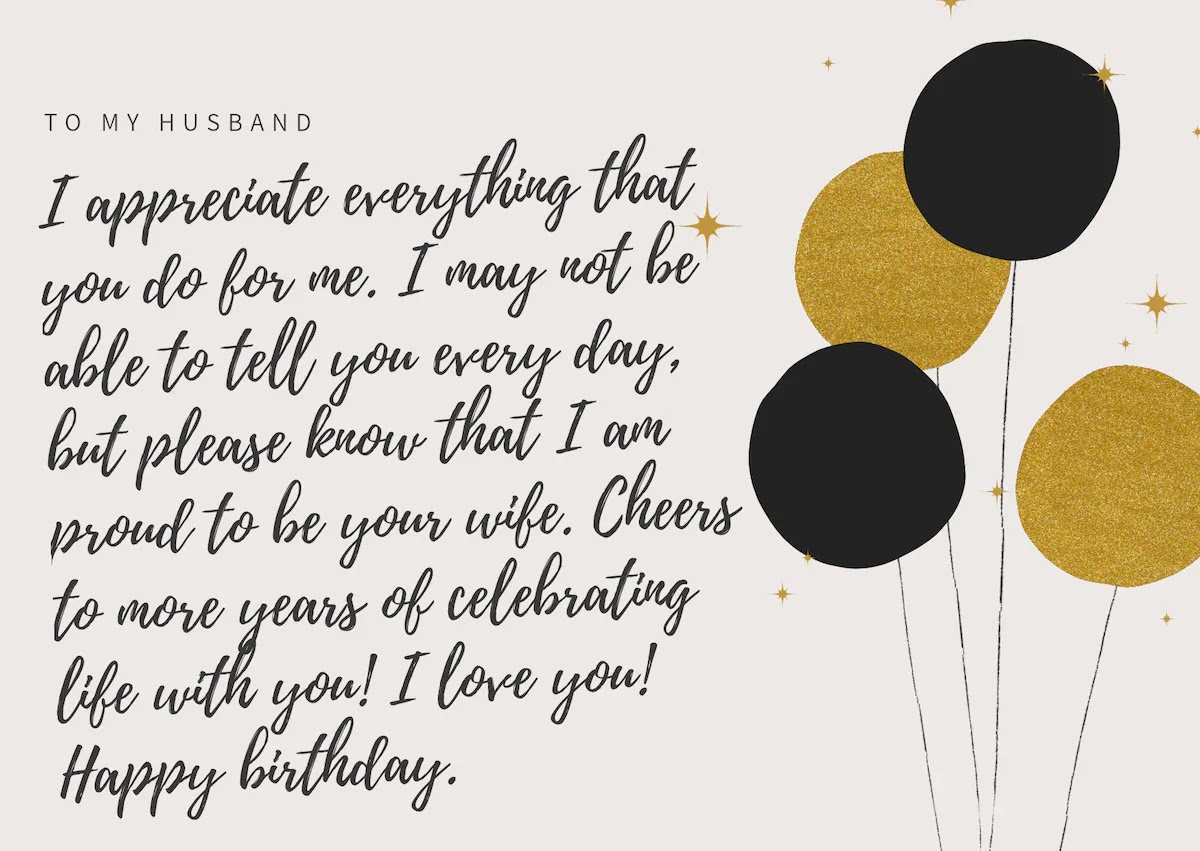 TO MY HUSBAND
I appreciate everything that
you do for me. I may not be
able to tell you every day,
but please know that I am
proud to be your wife. Cheers
to more years of celebrating
life with you! I love you!
Happy birthday.